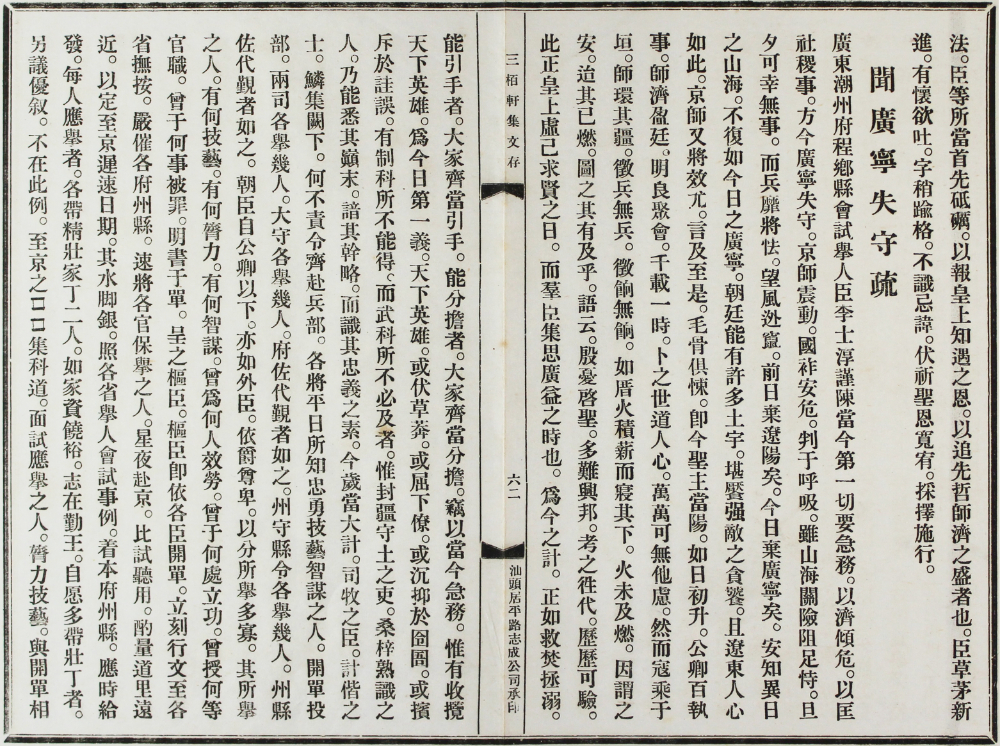 法。臣等所當首先砥礪。以報皇上知遇之恩。以追先哲師濟之盛者也。臣草茅新
進。有懷欲吐。字稍踰格。不識忌諱。伏祈聖恩寬宥。採擇施行。
聞廣寧失守疏
廣東潮州府程鄉縣會試舉人臣李士淳謹陳當今第一切要急務。以濟傾危。以匡
社稷事。方今廣寧失守。京師震動。國祚安危。判于呼吸。雖山海關險阻足恃。旦
夕可幸無事。而兵靡將怯。望風迯竄。前日棄遼陽矣。今日棄廣寧矣。安知異日
之山海。不復如今日之廣寧。朝廷能有許多土宇。堪饜强敵之貪饕。且遼東人心
如此。京師又將效尤。言及至是。毛骨俱悚。卽今聖王當陽。如日初升。公卿百執
事。師濟盈廷。明良聚會。千載一時。卜之世道人心。萬萬可無他慮。然而寇乘于
垣。師環其疆。徵兵無兵。徵餉無餉。如厝火積薪而寢其下。火未及燃。因謂之
安。迨其已燃。圖之其有及乎。語云。殷憂啓聖。多難興邦。考之徃代。歷歷可驗。
此正皇上虛己求賢之日。而羣臣集思廣益之時也。爲今之計。正如救焚拯溺。
三栢軒集文存
六二
汕頭居平路志成公司承印
能引手者。大家齊當引手。能分擔者。大家齊當分擔。竊以當今急務。惟有收攬
天下英雄。爲今日第一義。天下英雄。或伏草莽。或屈下僚。或沉抑於囹圄。或擯
斥於詿誤。有制科所不能得。而武科所不必及者。惟封疆守土之吏。桑梓熟識之
人。乃能悉其巔末。諳其幹略。而識其忠義之素。今歲當大計。司牧之臣。計偕之
士。鱗集闕下。何不責令齊赴兵部。各將平日所知忠勇技藝智謀之人。開單投
部。兩司各舉幾人。大守各舉幾人。府佐代覲者如之。州守縣令各舉幾人。州縣
佐代覲者如之。朝臣自公卿以下。亦如外臣。依爵尊卑。以分所舉多寡。其所舉
之人。有何技藝。有何膂力。有何智謀。曾爲何人效勞。曾于何處立功。曾授何等
官職。曾于何事被罪。明書于單。呈之樞臣。樞臣卽依各臣開單。立刻行文至各
省撫按。嚴催各府州縣。速將各官保舉之人。星夜赴京。比試聽用。酌量道里遠
近。以定至京遲速日期。其水脚銀。照各省舉人會試事例。着本府州縣。應時給
發。每人應舉者。各帶精壯家丁二人。如家資饒裕。志在勤王。自愿多帶壯丁者。
另議優叙。不在此例。至京之口口集科道。面試應舉之人。膂力技藝。與開單相